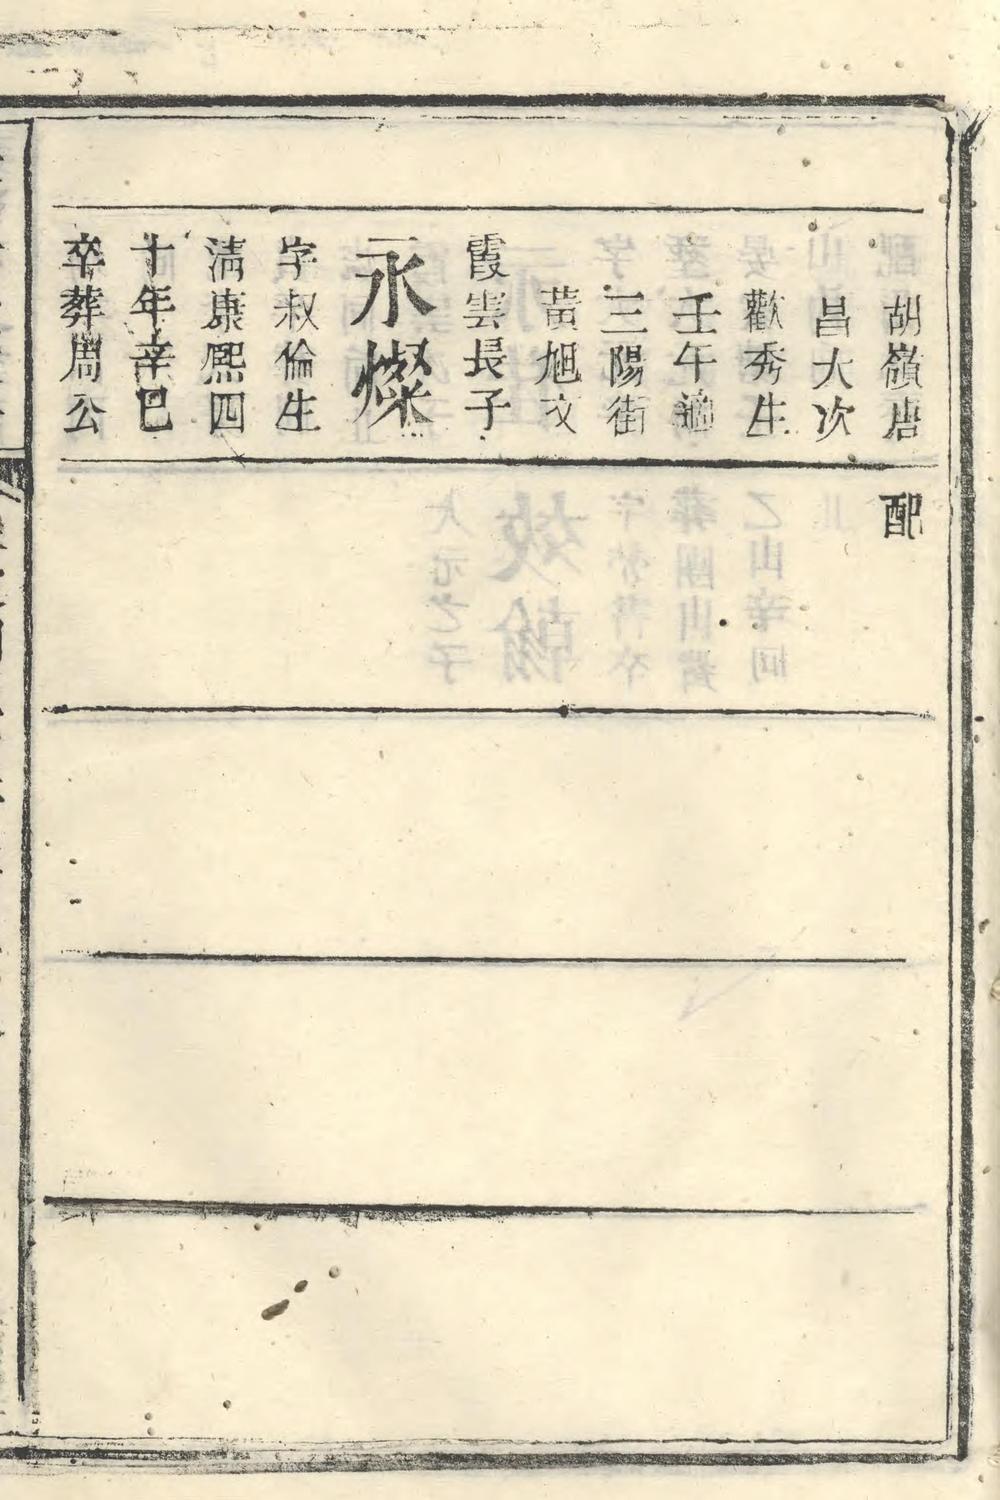 胡嶺唐
昌大次
歡秀生
壬午適
三陽街
黃旭文
霞雲長子
永燦
字叔倫生
清康熙四
十年辛巳
卒葬周公
配